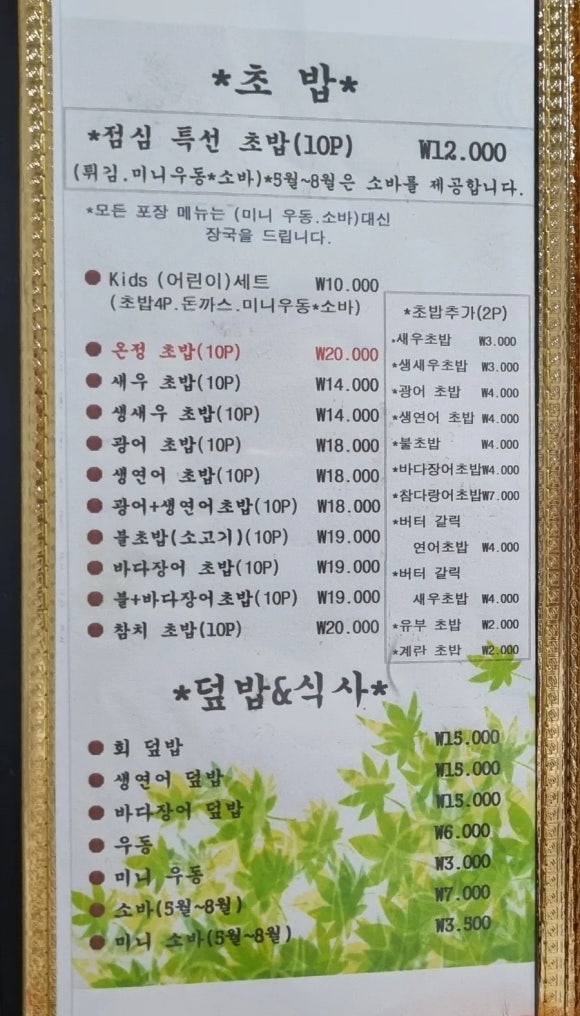 *초 밥*
*점심 특선 초밥(10P) ₩12.000
(튀김.미니우동*소바)*5월~8월은 소바를 제공합니다.
*모든 포장 메뉴는 (미니 우동.소바)대신
장국을 드립니다.
Kids (어린이)세트 ₩10.000
(초밥4P.돈까스.미니우동*소바)
온정 초밥(10P) ₩20.000
새우 초밥(10P) ₩14.000
생새우 초밥(10P) ₩14.000
광어 초밥(10P) ₩18.000
생연어 초밥(10P) ₩18.000
광어+생연어초밥(10P) ₩18.000
불초밥(소고기)(10P) ₩19.000
바다장어 초밥(10P) ₩19.000
불+바다장어초밥(10P) ₩19.000
참치 초밥(10P) ₩20.000
*초밥추가(2P)
*새우초밥 ₩3.000
*생새우초밥 ₩3.000
*광어 초밥 ₩4.000
*생연어 초밥 ₩4.000
*불초밥 ₩4.000
*바다장어초밥₩4.000
*참다랑어초밥₩7.000
*버터 갈릭
연어초밥 ₩4.000
*버터 갈릭
새우초밥 ₩4.000
*유부 초밥 ₩2.000
*계란 초밥 ₩2.000
*덮밥&식사*
회 덮밥 ₩15.000
생연어 덮밥 ₩15.000
바다장어 덮밥 ₩15.000
우동 ₩6.000
미니 우동 ₩3.000
소바(5월~8월) ₩7.000
미니 소바(5월~8월) ₩3.500